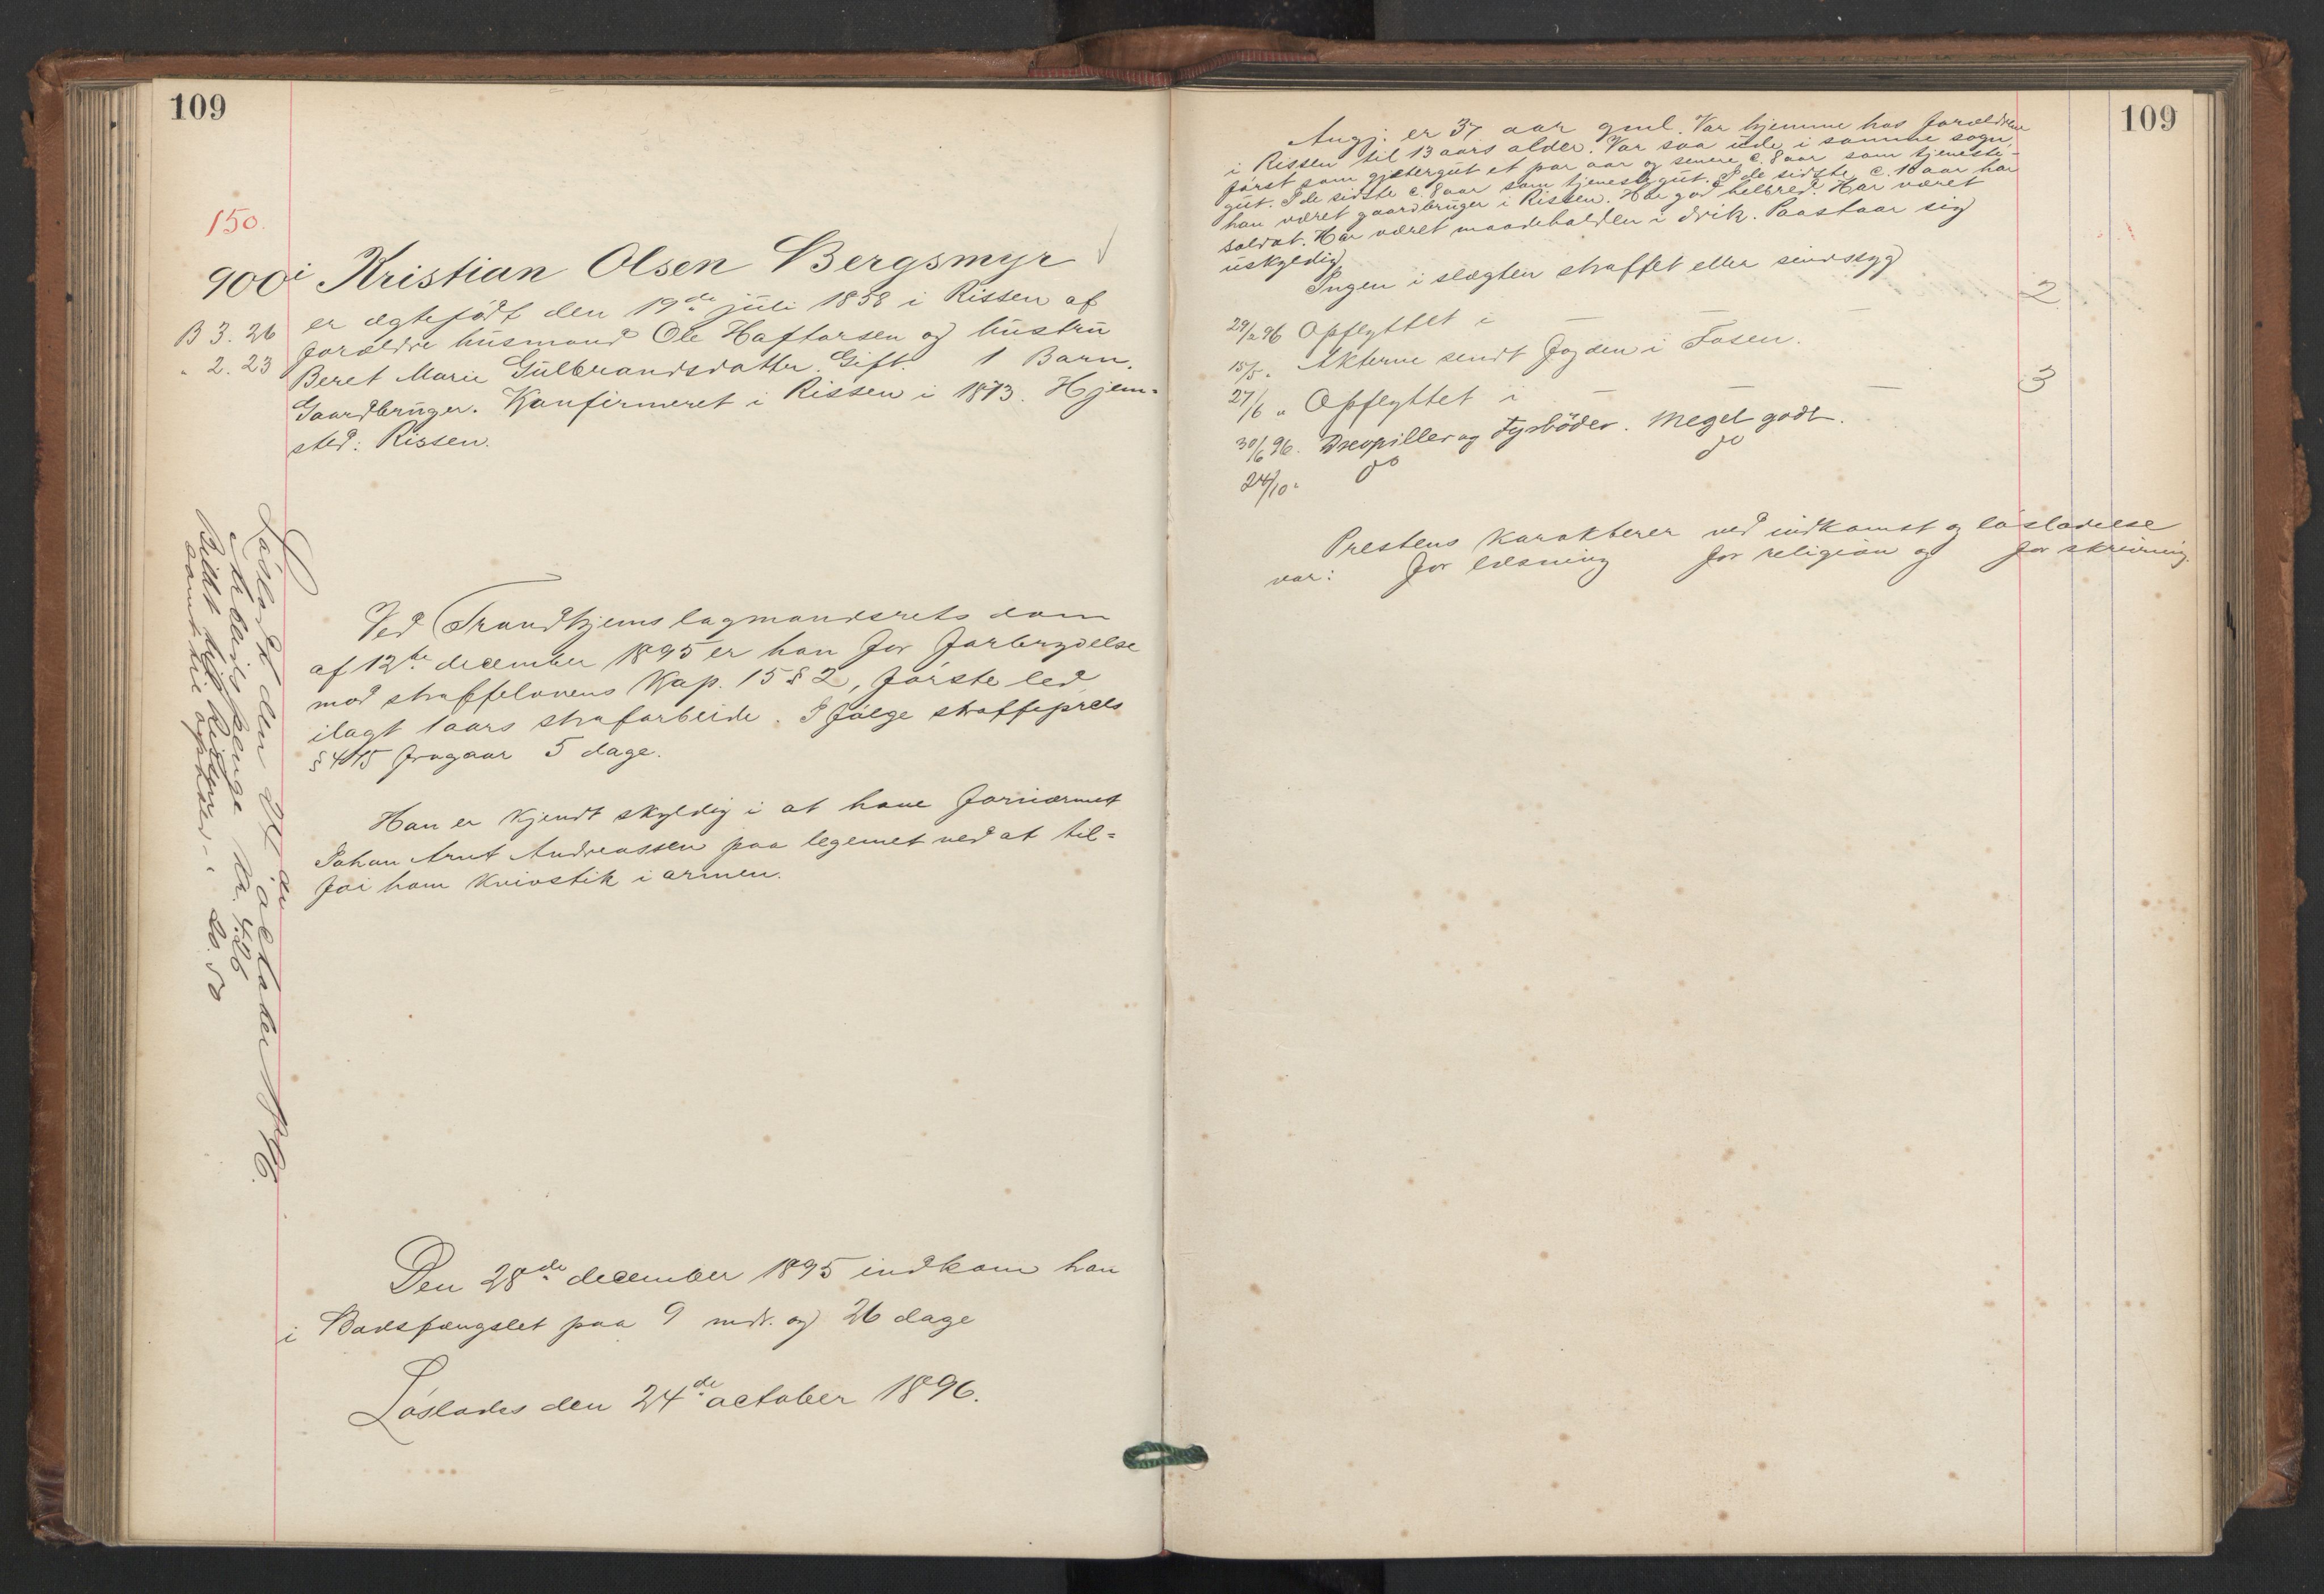 109
150.
900i Kristian Olsen Bergsmyr
B 3. 26 er ægtefødt den 19de juli 1858 i Rissen af
" 2. 23 forældre husmand Ole Haftorsen og hustru
Beret Marie Gulbrandsdatter. Gift. 1 Barn.
Gaardbruger. Konfirmeret i Rissen i 1873. Hjem=
sted: Rissen.
Ved Trondhjems lagmandsrets dom
af 12te december 1895 er han for forbrydelse
mod straffelovens Kap. 15 § 2, første led
ilagt 1 aars strafarbeide. I følge straffeprcls
§ 415 fragaar 5 dage.
Han er kjendt skyldig i at have fornærmet
Johan Arnt Andreassen paa legemet ved at til=
føi ham knivstik i armen.
Den 28de december 1895 indkom han
i Bodsfængslet paa 9 mdr. og 26 dage
Løslades den 24de october 1896.
Løsladt den 24de october 1896.
Arbeidspenge kr. 4.26
Billet til Rissen
samt til 20.50
109
Angj: er 37 aar gml. Var hjemme hos forældrene
i Rissen til 13 aars alder. Var saa ude i samme sogn,
først som gjætergut et par aar og senere c. 8 aar som tjeneste-
gut. I de sidste c. 8 aar som tjenestegut. I de sidste c. 10 aar har
han været gaardbruger i Rissen. Har god helbred. Har været
soldat. Har været maadeholden i drik. Paastaar sig
uskyldig
Ingen i slægten straffet eller sindssyg
29/2 96 Opflyttet i — — — 2
15/5 " Akterne sendt fogden i Fosen.
27/6 " Opflyttet i — — — 3
30/6 96. og . Meget godt.
24/10 " do do
Prestens karakterer ved indkomst og løsladelse
var: for læsning for religion og for skrivning.